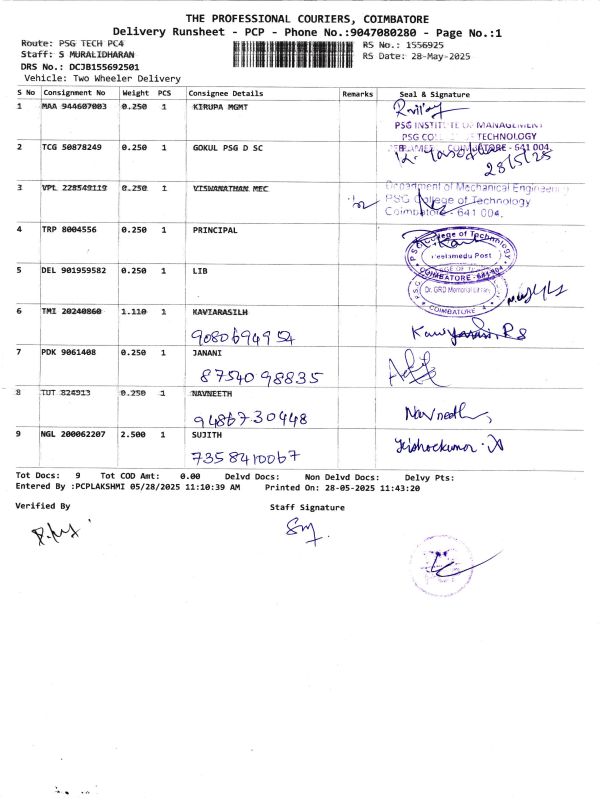 THE PROFESSIONAL COURIERS, COIMBATORE
Delivery Runsheet - PCP - Phone No.:9047080280 - Page No.:1
Route: PSG TECH PC4
RS No.: 1556925
Staff: S MURALIDHARAN
RS Date: 28-May-2025
DRS No.: DCJB155692501
Vehicle: Two Wheeler Delivery
S No Consignment No Weight PCS Consignee Details Remarks Seal & Signature
1 MAA 944607003 0.250 1 KIRUPA MGMT
PSG INSTITUTE OF MANAGEMENT
PSG COLLEGE OF TECHNOLOGY
2 TCG 50878249 0.250 1 GOKUL PSG D SC
COIMBATORE - 641 004.
28/5/25
3 VPL 228549119 0.250 1 VISWANATHAN MEC
Department of Mechanical Engineering
PSG College of Technology
Coimbatore - 641 004.
4 TRP 8004556 0.250 1 PRINCIPAL
PSG College of Technology
Peelamedu Post
COIMBATORE - 641 004
5 DEL 901959582 0.250 1 LIB
Dr. GRD Memorial Library
COIMBATORE
6 TMI 20240860 1.110 1 KAVIARASILH
9080694954
7 PDK 9061408 0.250 1 JANANI
8754098835
8 TUT 824913 0.250 1 NAVNEETH
9486730448
Navneeth
9 NGL 200062207 2.500 1 SUJITH
7358410067
Kishorekumar
Tot Docs: 9 Tot COD Amt: 0.00 Delvd Docs: Non Delvd Docs: Delvy Pts:
Entered By :PCPLAKSHMI 05/28/2025 11:10:39 AM Printed On: 28-05-2025 11:43:20
Verified By
Staff Signature